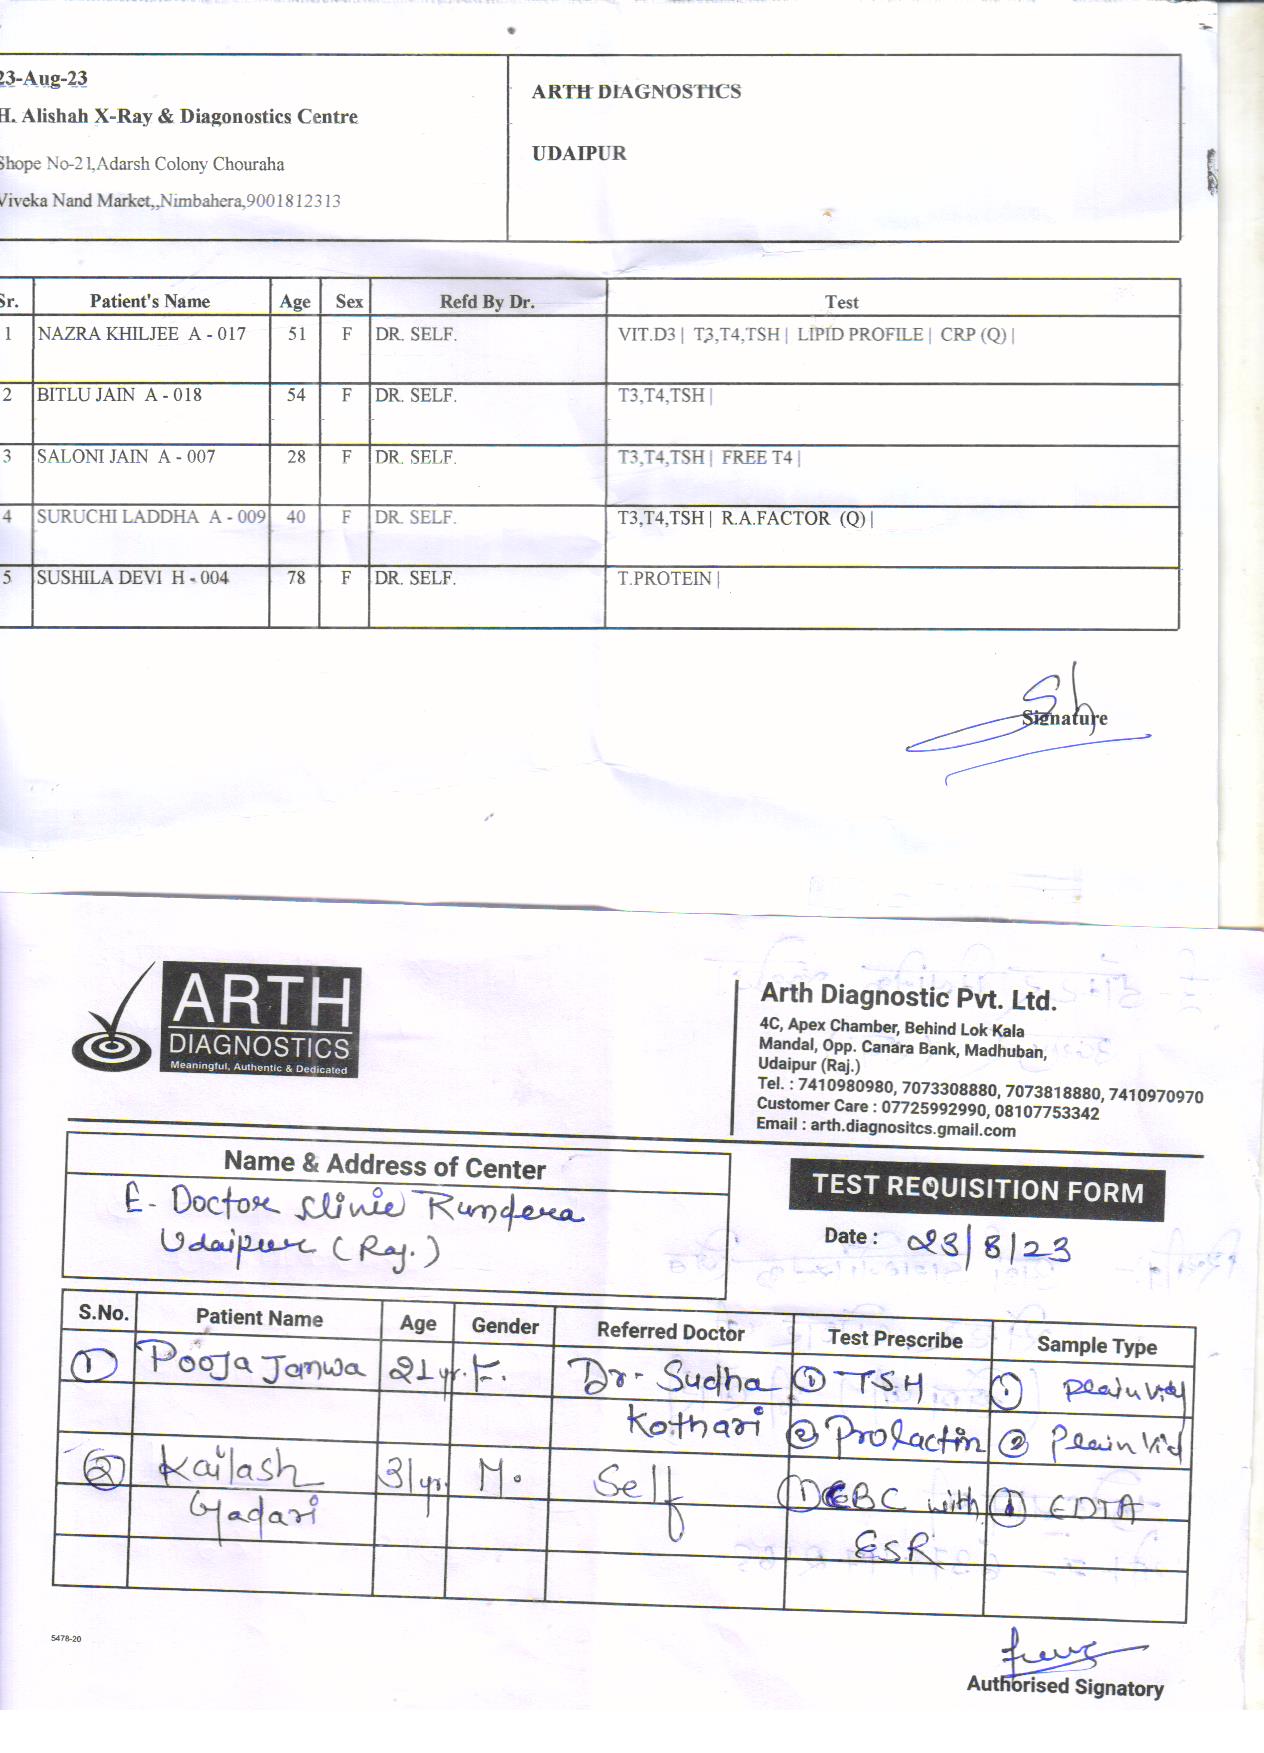 23-Aug-23
H. Alishah X-Ray & Diagonostics Centre
Shope No-21,Adarsh Colony Chouraha
Viveka Nand Market,,Nimbahera,9001812313
ARTH DIAGNOSTICS
UDAIPUR
Sr. Patient's Name Age Sex Refd By Dr. Test
1 NAZRA KHILJEE A - 017 51 F DR. SELF. VIT.D3 | T3,T4,TSH | LIPID PROFILE | CRP (Q) |
2 BITLU JAIN A - 018 54 F DR. SELF. T3,T4,TSH |
3 SALONI JAIN A - 007 28 F DR. SELF. T3,T4,TSH | FREE T4 |
4 SURUCHI LADDHA A - 009 40 F DR. SELF. T3,T4,TSH | R.A.FACTOR (Q) |
5 SUSHILA DEVI H - 004 78 F DR. SELF. T.PROTEIN |
Sh
Signature
ARTH
DIAGNOSTICS
Meaningful, Authentic & Dedicated
Arth Diagnostic Pvt. Ltd.
4C, Apex Chamber, Behind Lok Kala
Mandal, Opp. Canara Bank, Madhuban,
Udaipur (Raj.)
Tel. : 7410980980, 7073308880, 7073818880, 7410970970
Customer Care : 07725992990, 08107753342
Email : arth.diagnositcs.gmail.com
Name & Address of Center
E- Doctor Clinic Rundera
Udaipur (Raj.)
TEST REQUISITION FORM
Date : 23/8/23
S.No. Patient Name Age Gender Referred Doctor Test Prescribe Sample Type
① Pooja Janwa 21 yr. F. Dr- Sudha ① TSH ① Plain Vial
Kothari ② Prolactin ② Plain Vial
② Kailash 31 yr. M. Self ① CBC with ① EDTA
Gadari ESR
5478-20
Authorised Signatory